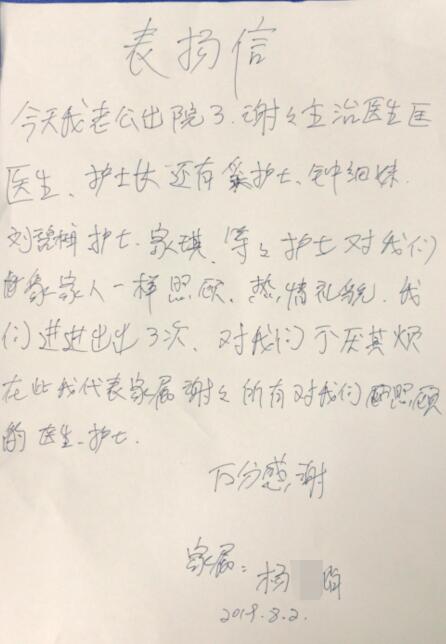 表扬信
今天我老公出院了.谢々主治医生匡
医生、护士长还有护士、钟细妹.
刘碧梅护士.家琪.等々护士对我们
象家人一样照顾、热情礼貌.我
们进进出出3次、对我们不厌其烦
在此我代表家属谢々所有对我们照顾
的医生、护士.
万分感谢
家属:杨
2019.8.2.